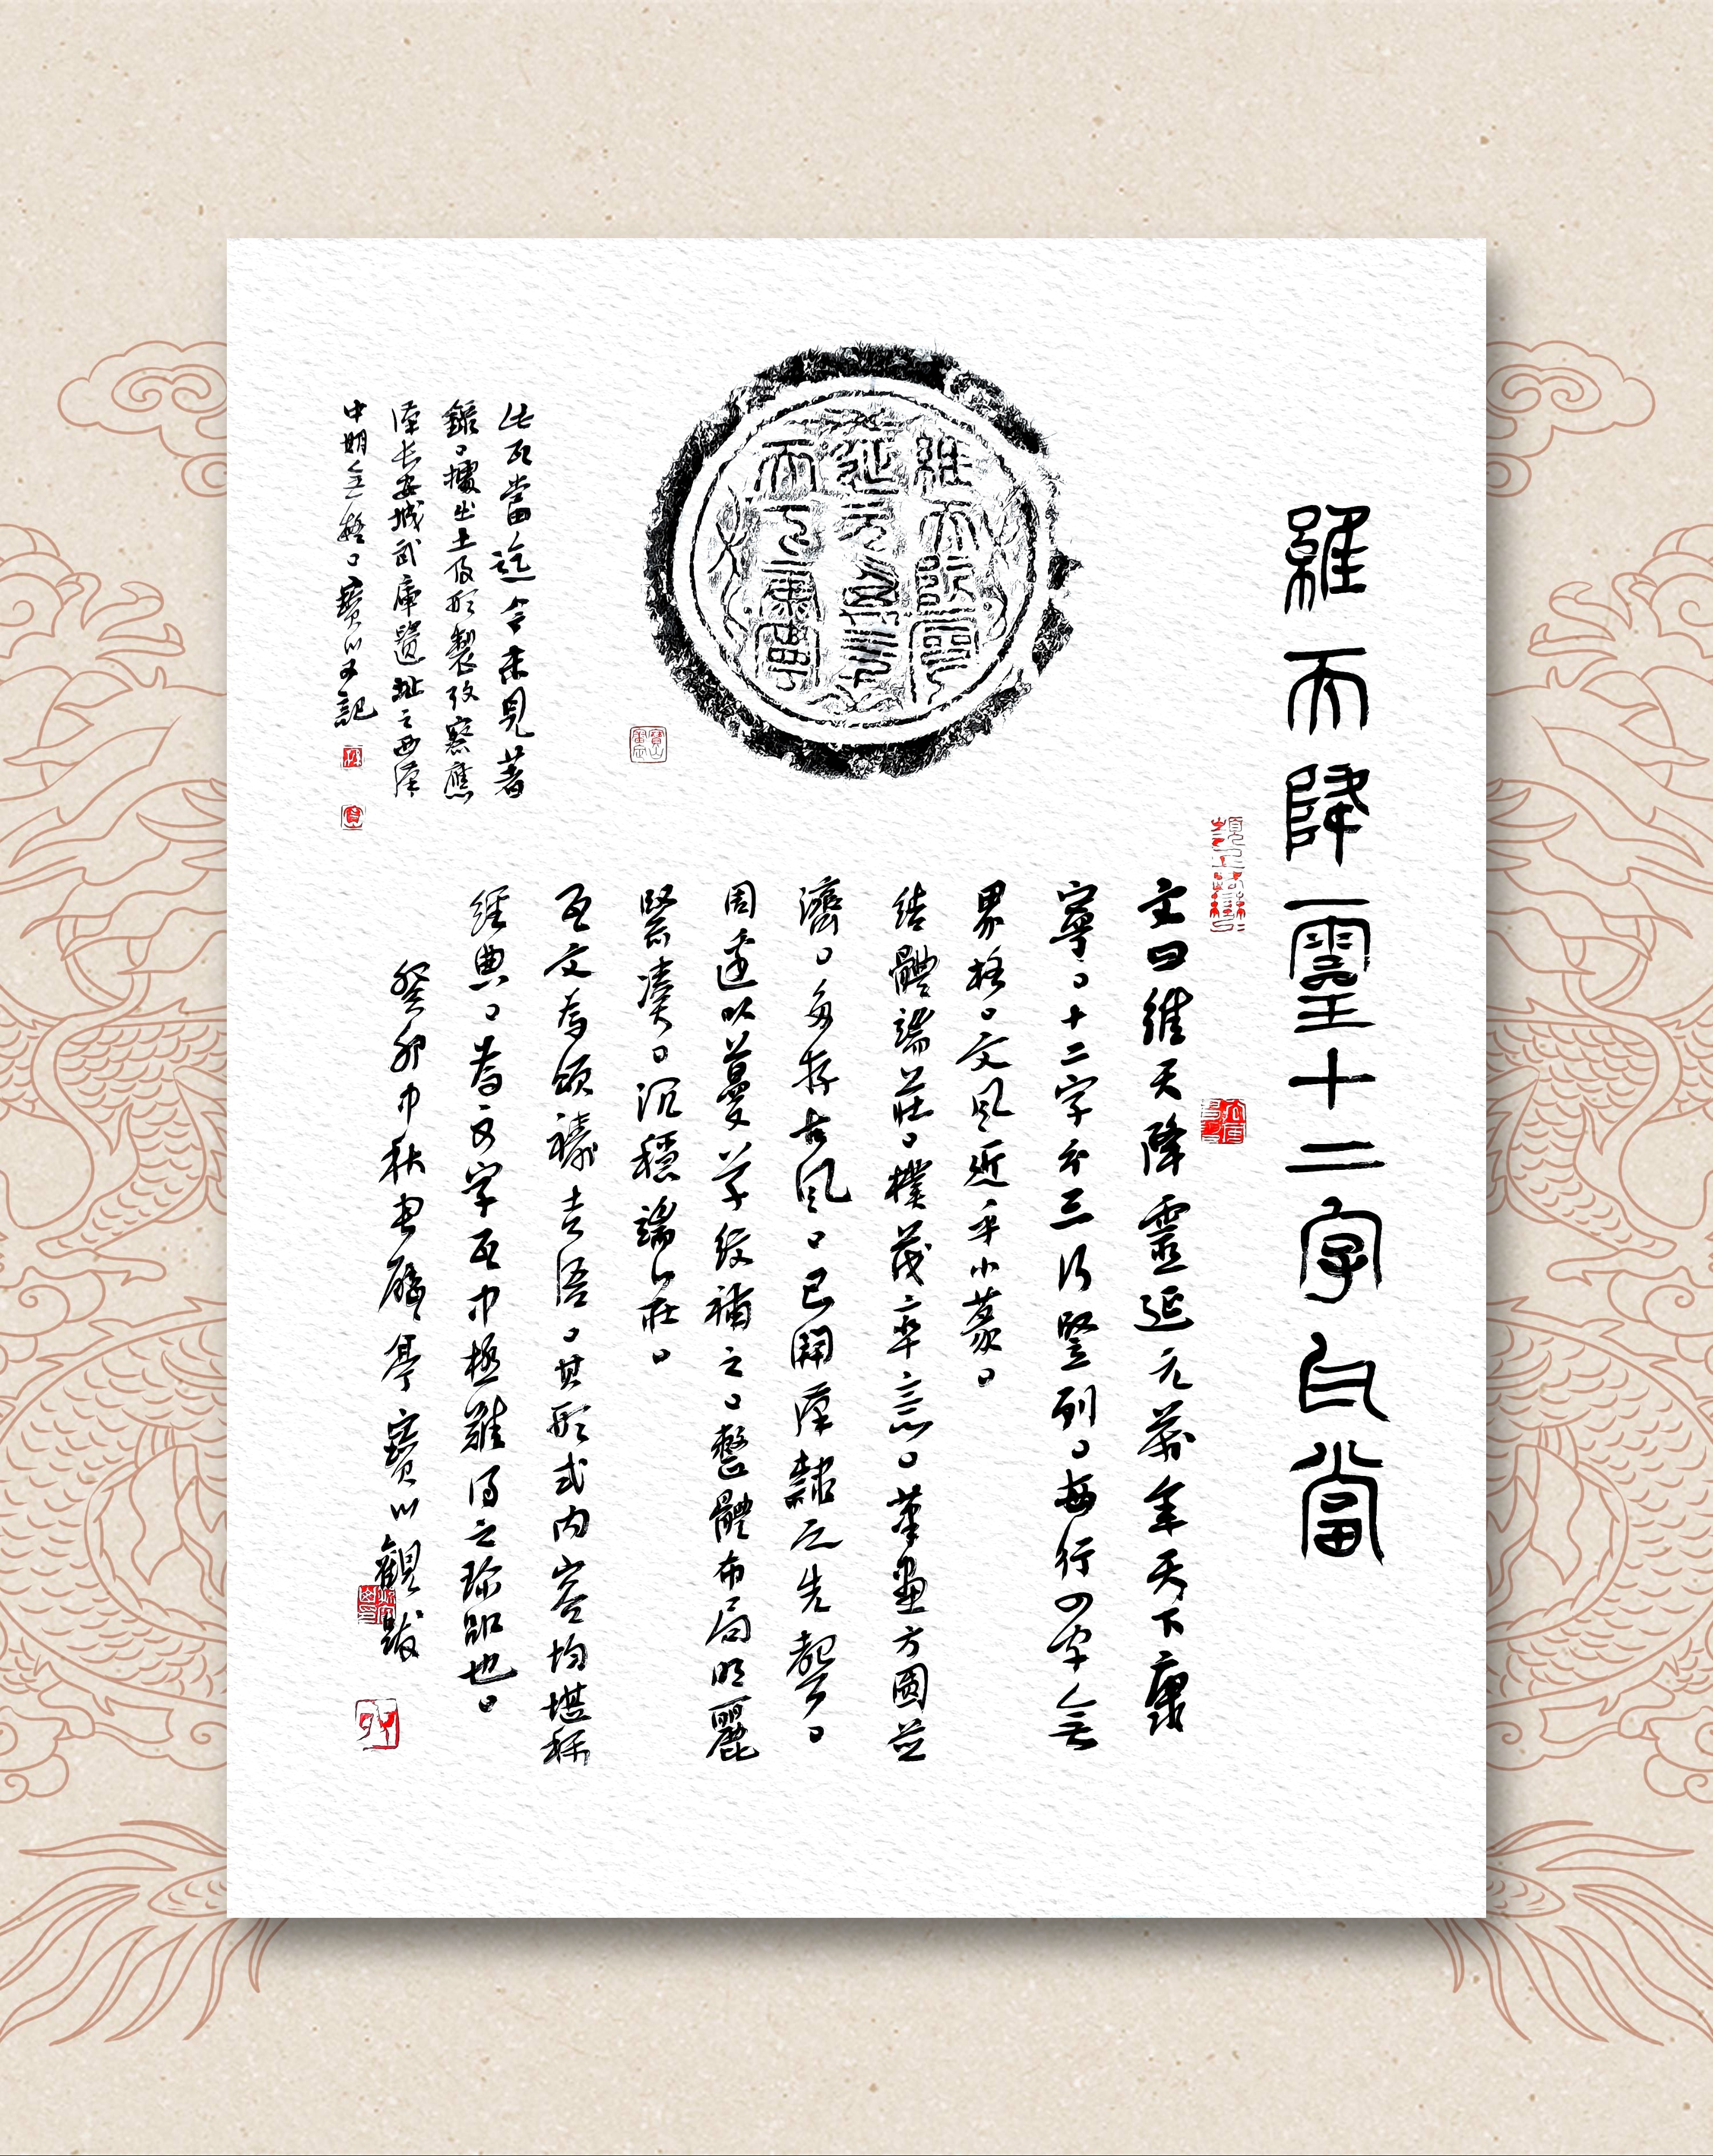 維天降靈十二字瓦當
文曰維天降靈延元萬年天下康
寧。十二字分三行豎列。每行四字無
界格。文風近乎小篆。
結體端莊。樸茂率意。筆畫方圓並
濟。多存古風。已開漢隸之先聲。
周邊以蔓草紋補之。整體布局明麗
緊湊。沉穩端莊。
瓦文為頌禱吉語。其形式內容均堪稱
經典。為文字瓦中極難得之珍品也。
癸卯中秋 寶山觀跋
維天降靈
延元萬年
天下康寧
此瓦當迄今未見著
錄。據出土及形製考察應
漢長安城武庫遺址之西漢
中期無疑。寶山又記